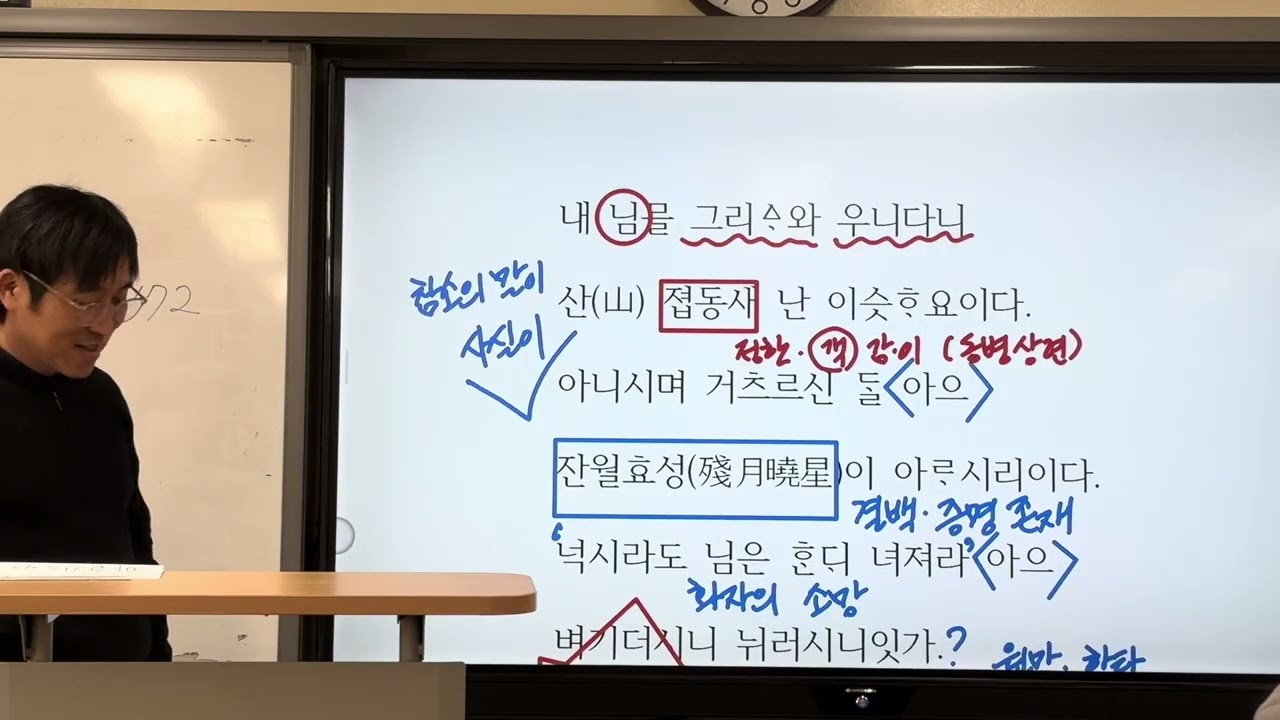 내 님를 그리ᅀᆞ와 우니다니
참소의 말이
산(山) 졉동새 난 이슷ᄒᆞ요이다.
사실이
정한·객 감·이 (동병상련)
아니시며 거츠르신 ᄃᆞᆯ〈아으〉
잔월효성(殘月曉星)이 아ᄅᆞ시리이다.
결백·증명 존재
'넉시라도 님은 ᄒᆞᆫᄃᆡ 녀져라'〈아으〉
화자의 소망
벼기더시니 뉘러시니잇가.?
원망·한탄
72